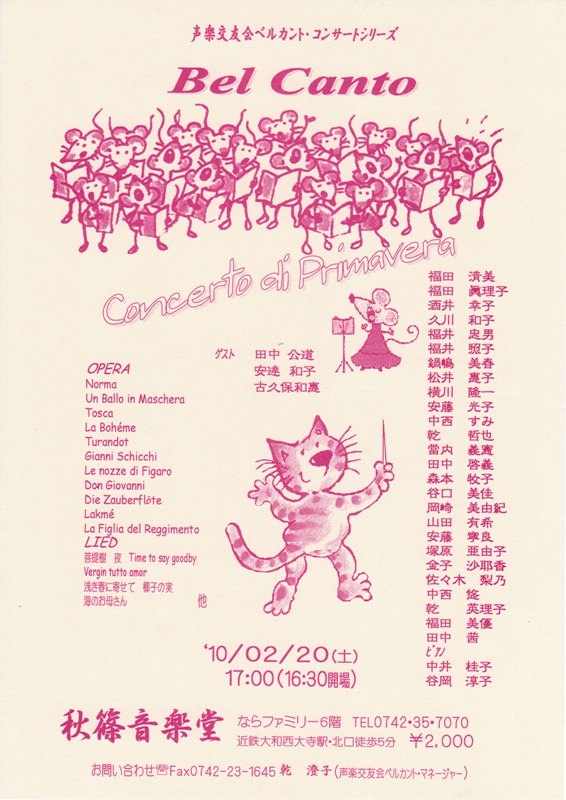 声楽交友会ベルカント・コンサートシリーズ
Bel Canto
Concerto di Primavera
ゲスト 田中 公道
安達 和子
古久保和惠
福田 清美
福田 眞理子
酒井 幸子
久川 和子
福井 忠男
福井 照子
鍋嶋 美春
松井 惠子
横川 隆一
安藤 光子
中西 すみ
乾 哲也
當内 義憲
田中 啓義
森本 牧子
谷口 美佳
岡崎 美由紀
山田 有希
安藤 寧良
塚原 亜由子
金子 沙耶香
佐々木 梨乃
中西 悠
乾 英理子
福田 美優
田中 茜
ピアノ
中井 桂子
谷岡 淳子
OPERA
Norma
Un Ballo in Maschera
Tosca
La Bohéme
Turandot
Gianni Schicchi
Le nozze di Figaro
Don Giovanni
Die Zauberflöte
Lakmé
La Figlia del Reggimento
LIED
菩提樹 夜 Time to say goodby
Vergin tutto amor
浅き春に寄せて 椰子の実
海のお母さん 他
'10/02/20(土)
17:00(16:30開場)
秋篠音楽堂
ならファミリー6階 TEL0742・35・7070
近鉄大和西大寺駅・北口徒歩5分 ￥2,000
お問い合わせ☏Fax0742-23-1645 乾 澄子(声楽交友会ベルカント・マネージャー)